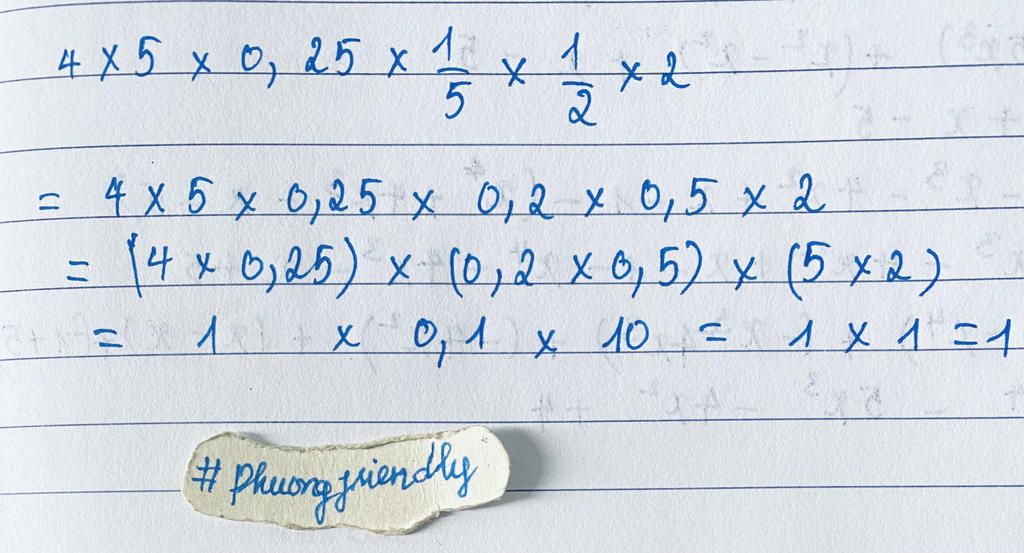 4 × 5 × 0,25 × 1/5 × 1/2 × 2
= 4 × 5 × 0,25 × 0,2 × 0,5 × 2
= (4 × 0,25) × (0,2 × 0,5) × (5 × 2)
= 1 × 0,1 × 10 = 1 × 1 = 1
# Phuongfriendly